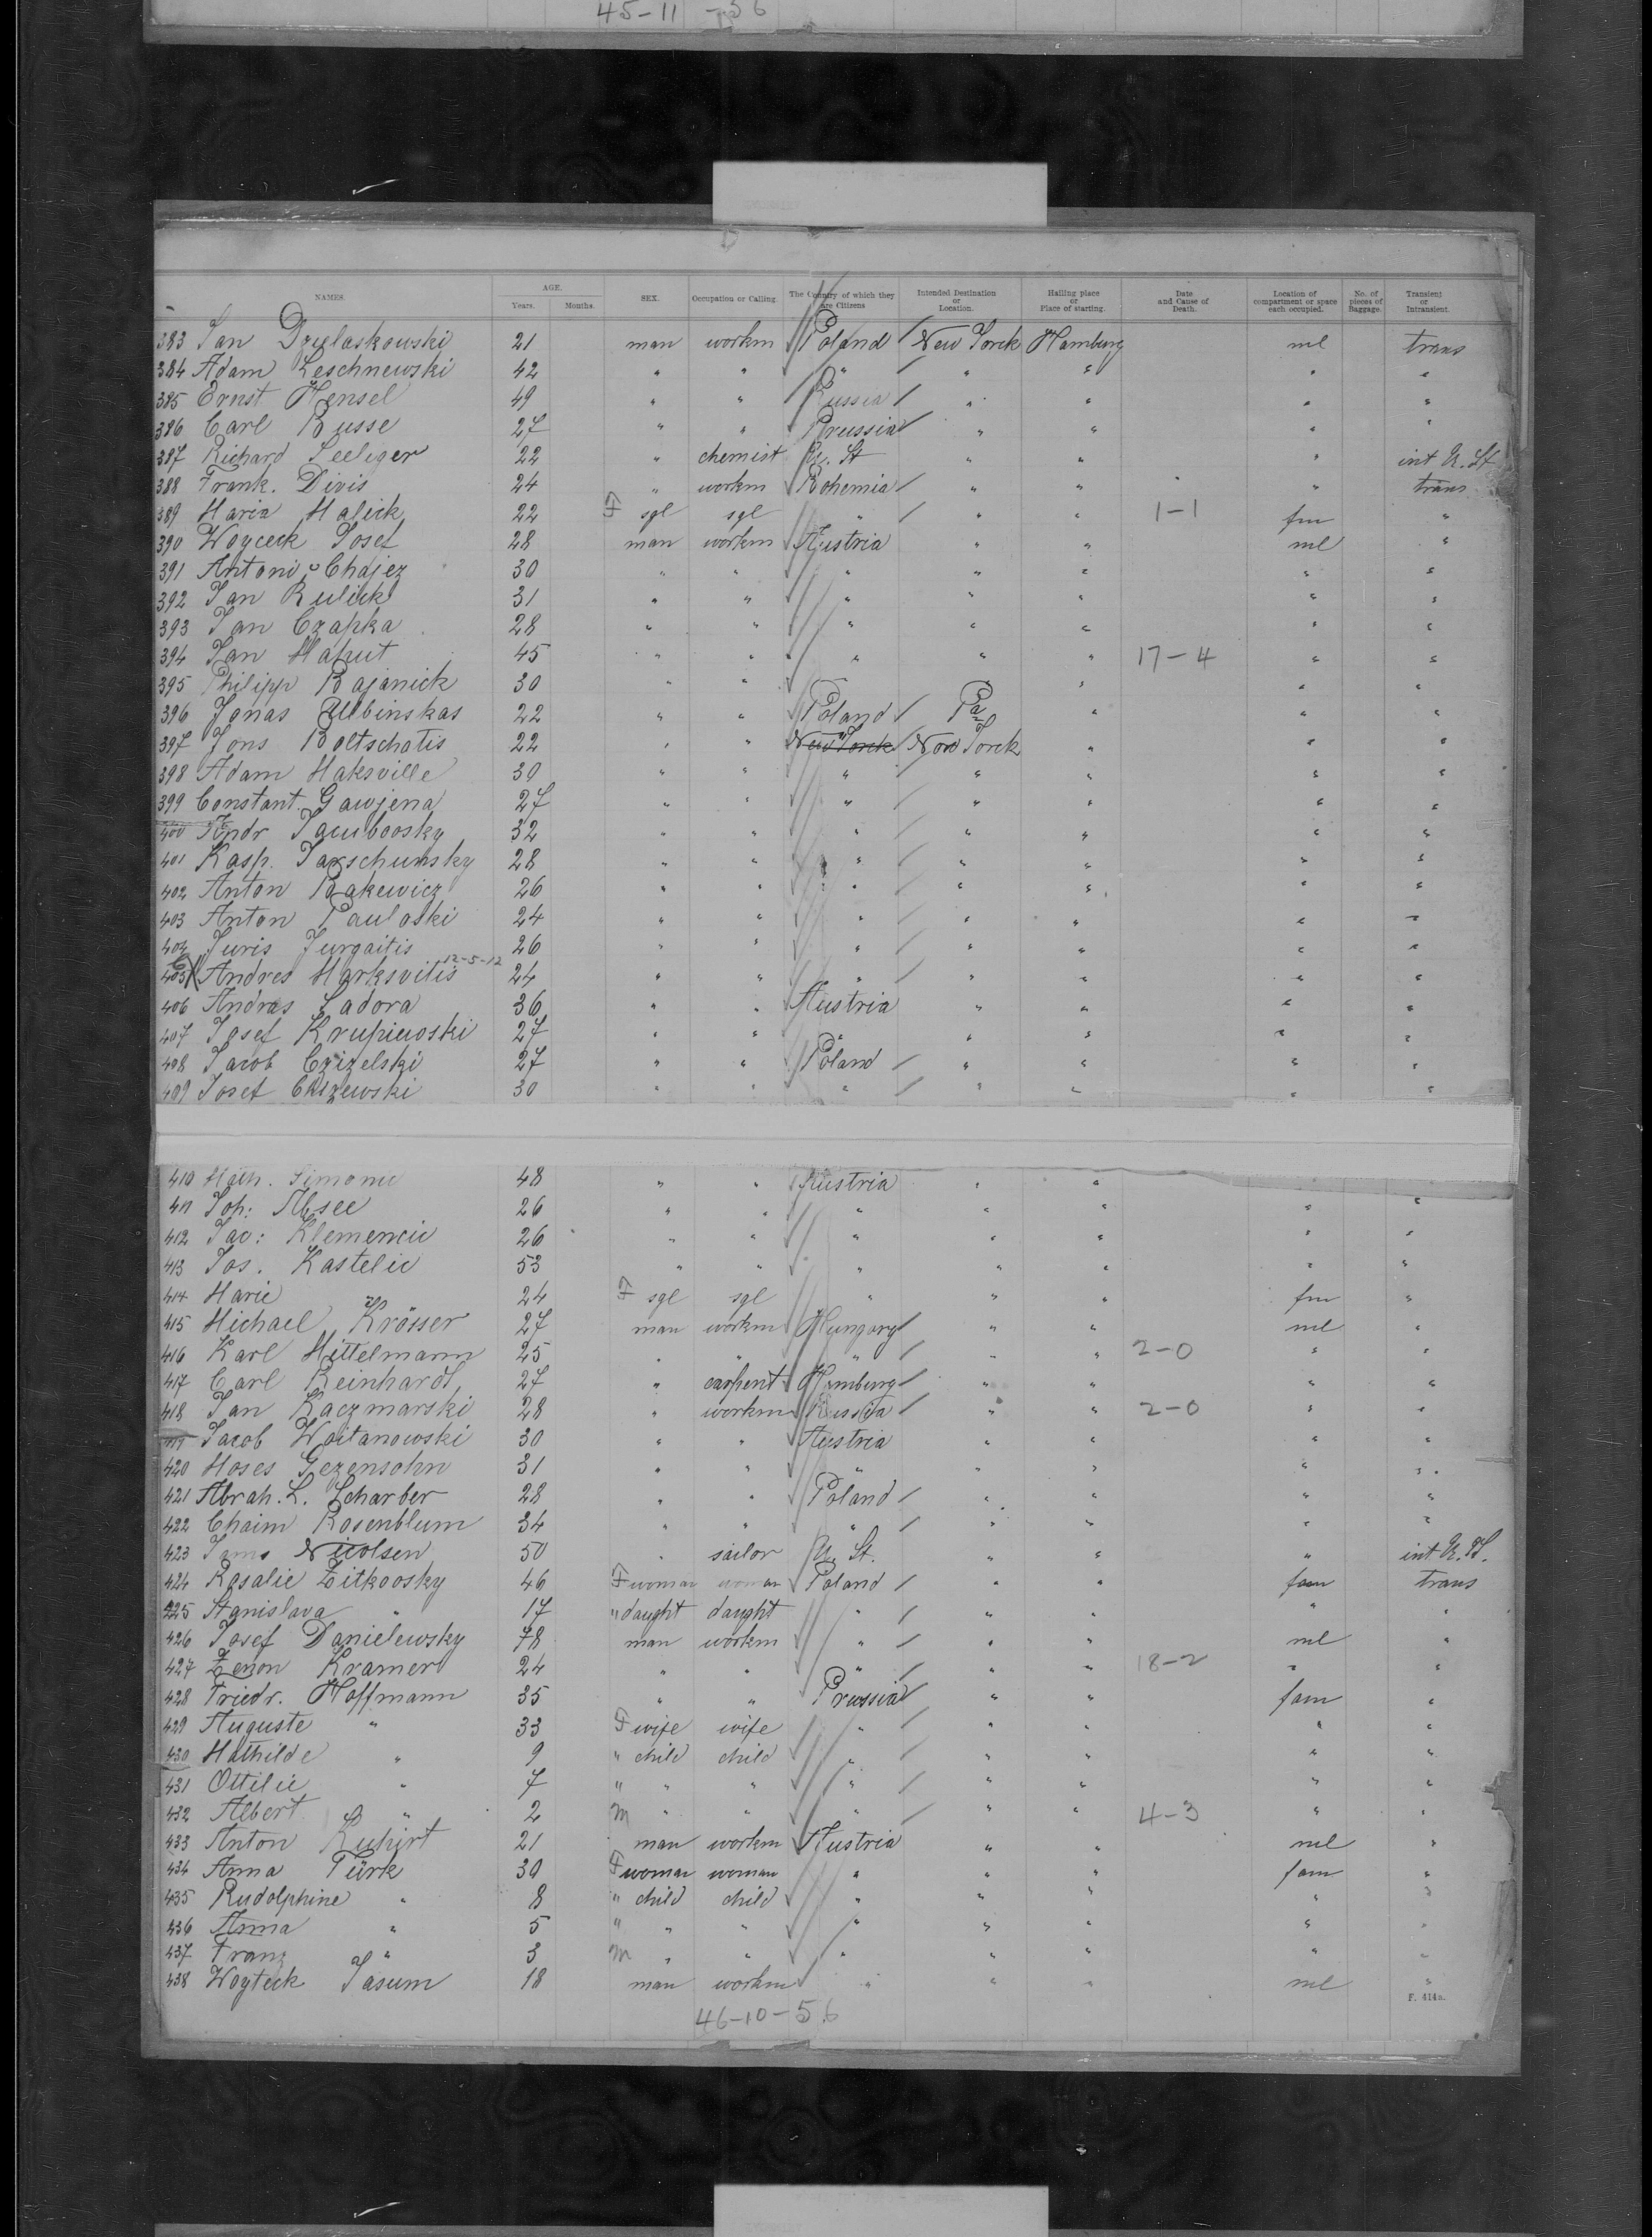 45-11 -56
NAMES. AGE. Years. Months. SEX. Occupation or Calling. The Country of which they are Citizens Intended Destination or Location. Hailing place or Place of starting. Date and Cause of Death. Location of compartment or space each occupied. No. of pieces of Baggage. Transient or Intransient.
383 Jan Dzulaskowski 21 man workm Poland New Yorck Hamburg ml trans
384 Adam Leschnewski 42 " " " " " " "
385 Ernst Hensel 49 " " Russia " " " "
386 Carl Busse 27 " " Prussia " " " "
387 Richard Seeliger 22 " chemist U. St " " " int U. St
388 Frank. Divis 24 " workm Bohemia " " " trans
389 Maria Malick 22 F sgl sgl " " " 1-1 fm "
390 Woyceck Josef 28 man workm Austria " " ml "
391 Antoni Chajez 30 " " " " " " "
392 Jan Kulick 31 " " " " " " "
393 Jan Czapka 28 " " " " " " "
394 Jan Maput 45 " " " " " 17-4 " "
395 Philipp Bajanick 30 " " " " "
396 Jonas Ulbinskas 22 " " Poland Pa " " "
397 Jons Boltschatis 22 " " New Yorck New Yorck " " "
398 Adam Maksville 30 " " " " " " "
399 Constant. Gawjena 27 " " " " " " "
400 Andr Jamboosky 32 " " " " " "
401 Kasp. Jaxschunsky 28 " " " " " " "
402 Anton Bakewicz 26 " " " " " " "
403 Anton Pauloski 24 " " " " " " "
404 Juris Jurgaitis 26 " " " " " " "
405 Andres Marksvitis 12-5-12 24 " " " " " " "
406 Andras Sadora 36 " " Austria " " " "
407 Josef Krupiewoski 27 " " " " " " "
408 Jacob Czizelski 27 " " Poland " " " "
409 Josef Chizewski 30 " " " " " " "
410 Math. Simonic 48 " " Austria " "
411 Joh: Absec 26 " " " " " " "
412 Jac: Klemencic 26 " " " " " " "
413 Jos. Kastelic 53 " " " " " " "
414 Marie " 24 F sgl sgl " " " fm "
415 Michael Krösser 27 man workm Hungary " " ml "
416 Karl Mittelmann 25 " " " " " 2-0 " "
417 Carl Reinhardt 27 " carpent Hamburg " " " "
418 Jan Kaczmarski 28 " workm Russia " " 2-0 " "
419 Jacob Woitanowski 30 " " Austria " " " "
420 Moses Gezensohn 31 " " " " " " "
421 Abrah. L. Scharber 28 " " Poland " " " "
422 Chaim Rosenblum 34 " " " " " " "
423 Jams Nicolsen 50 " sailor U. St. " " " int U. St.
424 Rosalie Zitkoosky 46 F woman woman Poland " " fam trans
425 Stanislava " 17 " daught daught " " " " "
426 Josef Danielewsky 78 man workm " " " ml "
427 Zenon Kramer 24 " " " " " 18-2 " "
428 Friedr. Hoffmann 35 " " Prussia " " fam "
429 Auguste " 33 F wife wife " " " " "
430 Mathilde " 9 " child child " " " " "
431 Ottilie " 7 " " " " " " " "
432 Albert " 2 M " " " " " 4-3 " "
433 Anton Kupirt 21 man workm Austria " " ml "
434 Anna Türk 30 F woman woman " " " fam "
435 Rudolphine " 8 " child child " " " " "
436 Anna " 5 " " " " " " " "
437 Franz " 3 M " " " " " " "
438 Woyteck Jasum 18 man workm " " " ml "
F. 414a.
46-10-56